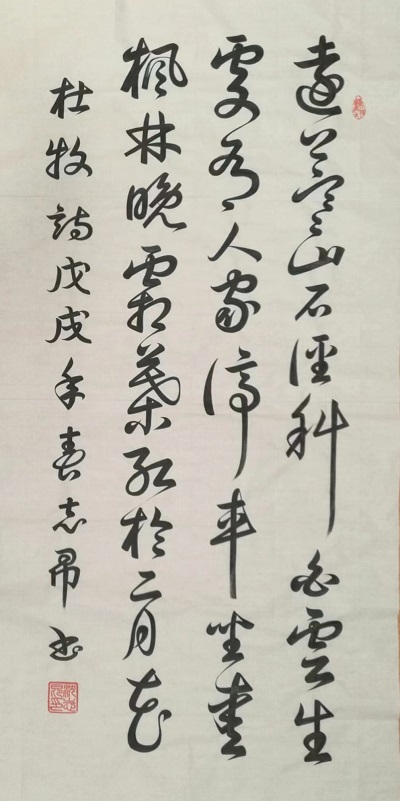 遠上寒山石徑斜白雲生
處有人家停車坐愛
楓林晚霜葉紅於二月花
杜牧詩戊戌年春志昂书